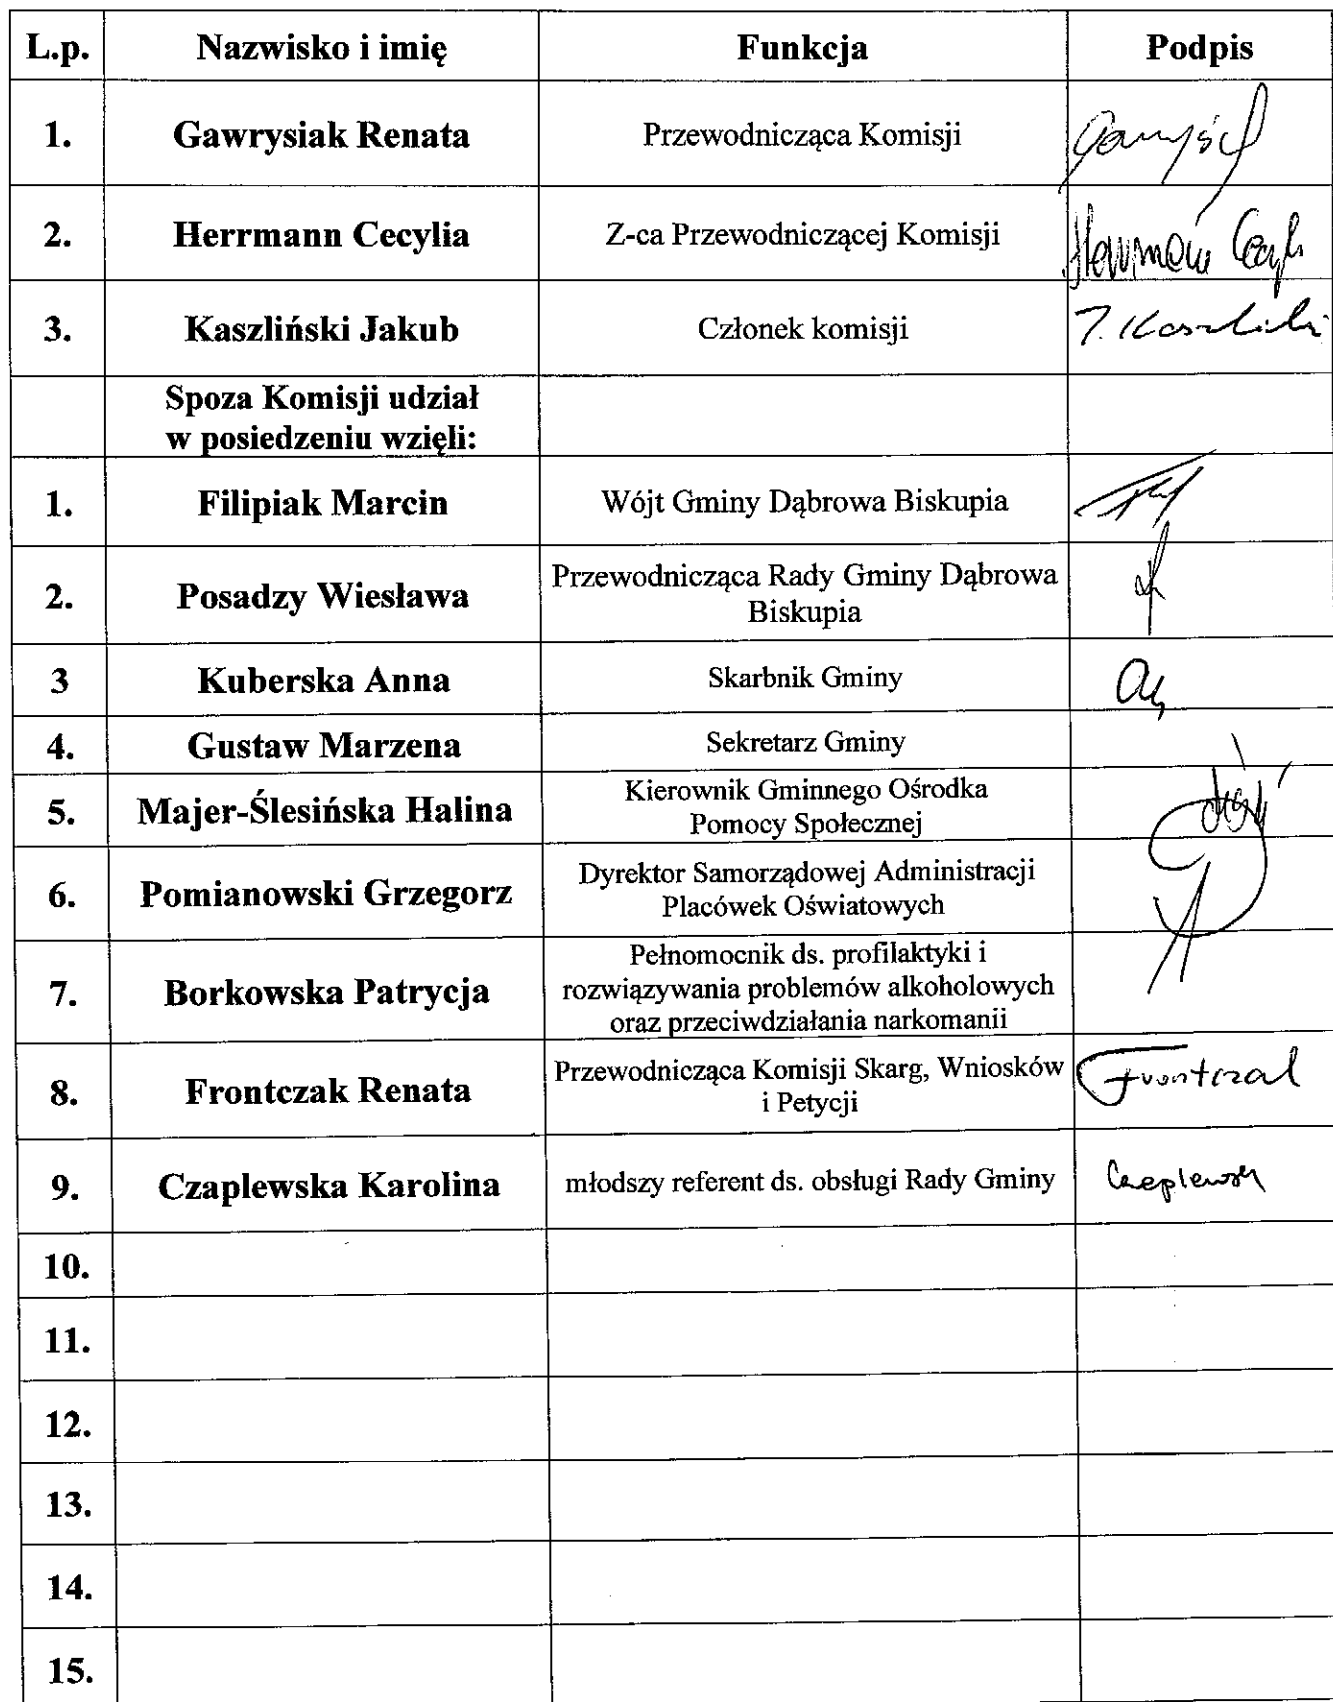 L.p. Nazwisko i imię Funkcja Podpis
1. Gawrysiak Renata Przewodnicząca Komisji
2. Herrmann Cecylia Z-ca Przewodniczącej Komisji
3. Kaszliński Jakub Członek komisji
Spoza Komisji udział
w posiedzeniu wzięli:
1. Filipiak Marcin Wójt Gminy Dąbrowa Biskupia
2. Posadzy Wiesława Przewodnicząca Rady Gminy Dąbrowa
Biskupia
3 Kuberska Anna Skarbnik Gminy
4. Gustaw Marzena Sekretarz Gminy
5. Majer-Ślesińska Halina Kierownik Gminnego Ośrodka
Pomocy Społecznej
6. Pomianowski Grzegorz Dyrektor Samorządowej Administracji
Placówek Oświatowych
7. Borkowska Patrycja Pełnomocnik ds. profilaktyki i
rozwiązywania problemów alkoholowych
oraz przeciwdziałania narkomanii
8. Frontczak Renata Przewodnicząca Komisji Skarg, Wniosków
i Petycji
9. Czaplewska Karolina młodszy referent ds. obsługi Rady Gminy
10.
11.
12.
13.
14.
15.